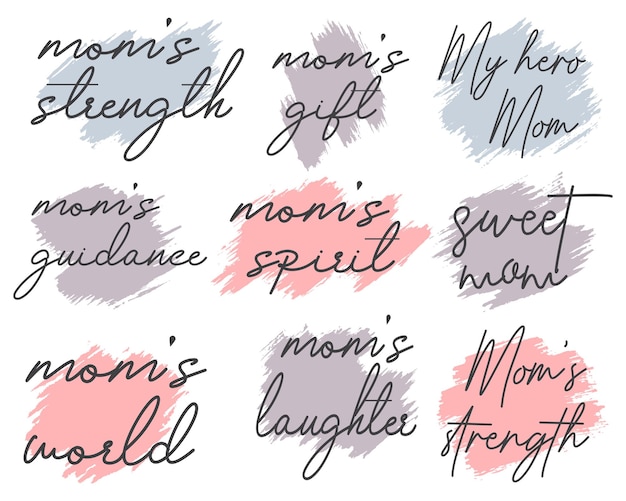 mom's
strength
mom's
gift
My hero
Mom
mom's
guidance
mom's
spirit
sweet
mom
mom's
world
mom's
laughter
Mom's
strength